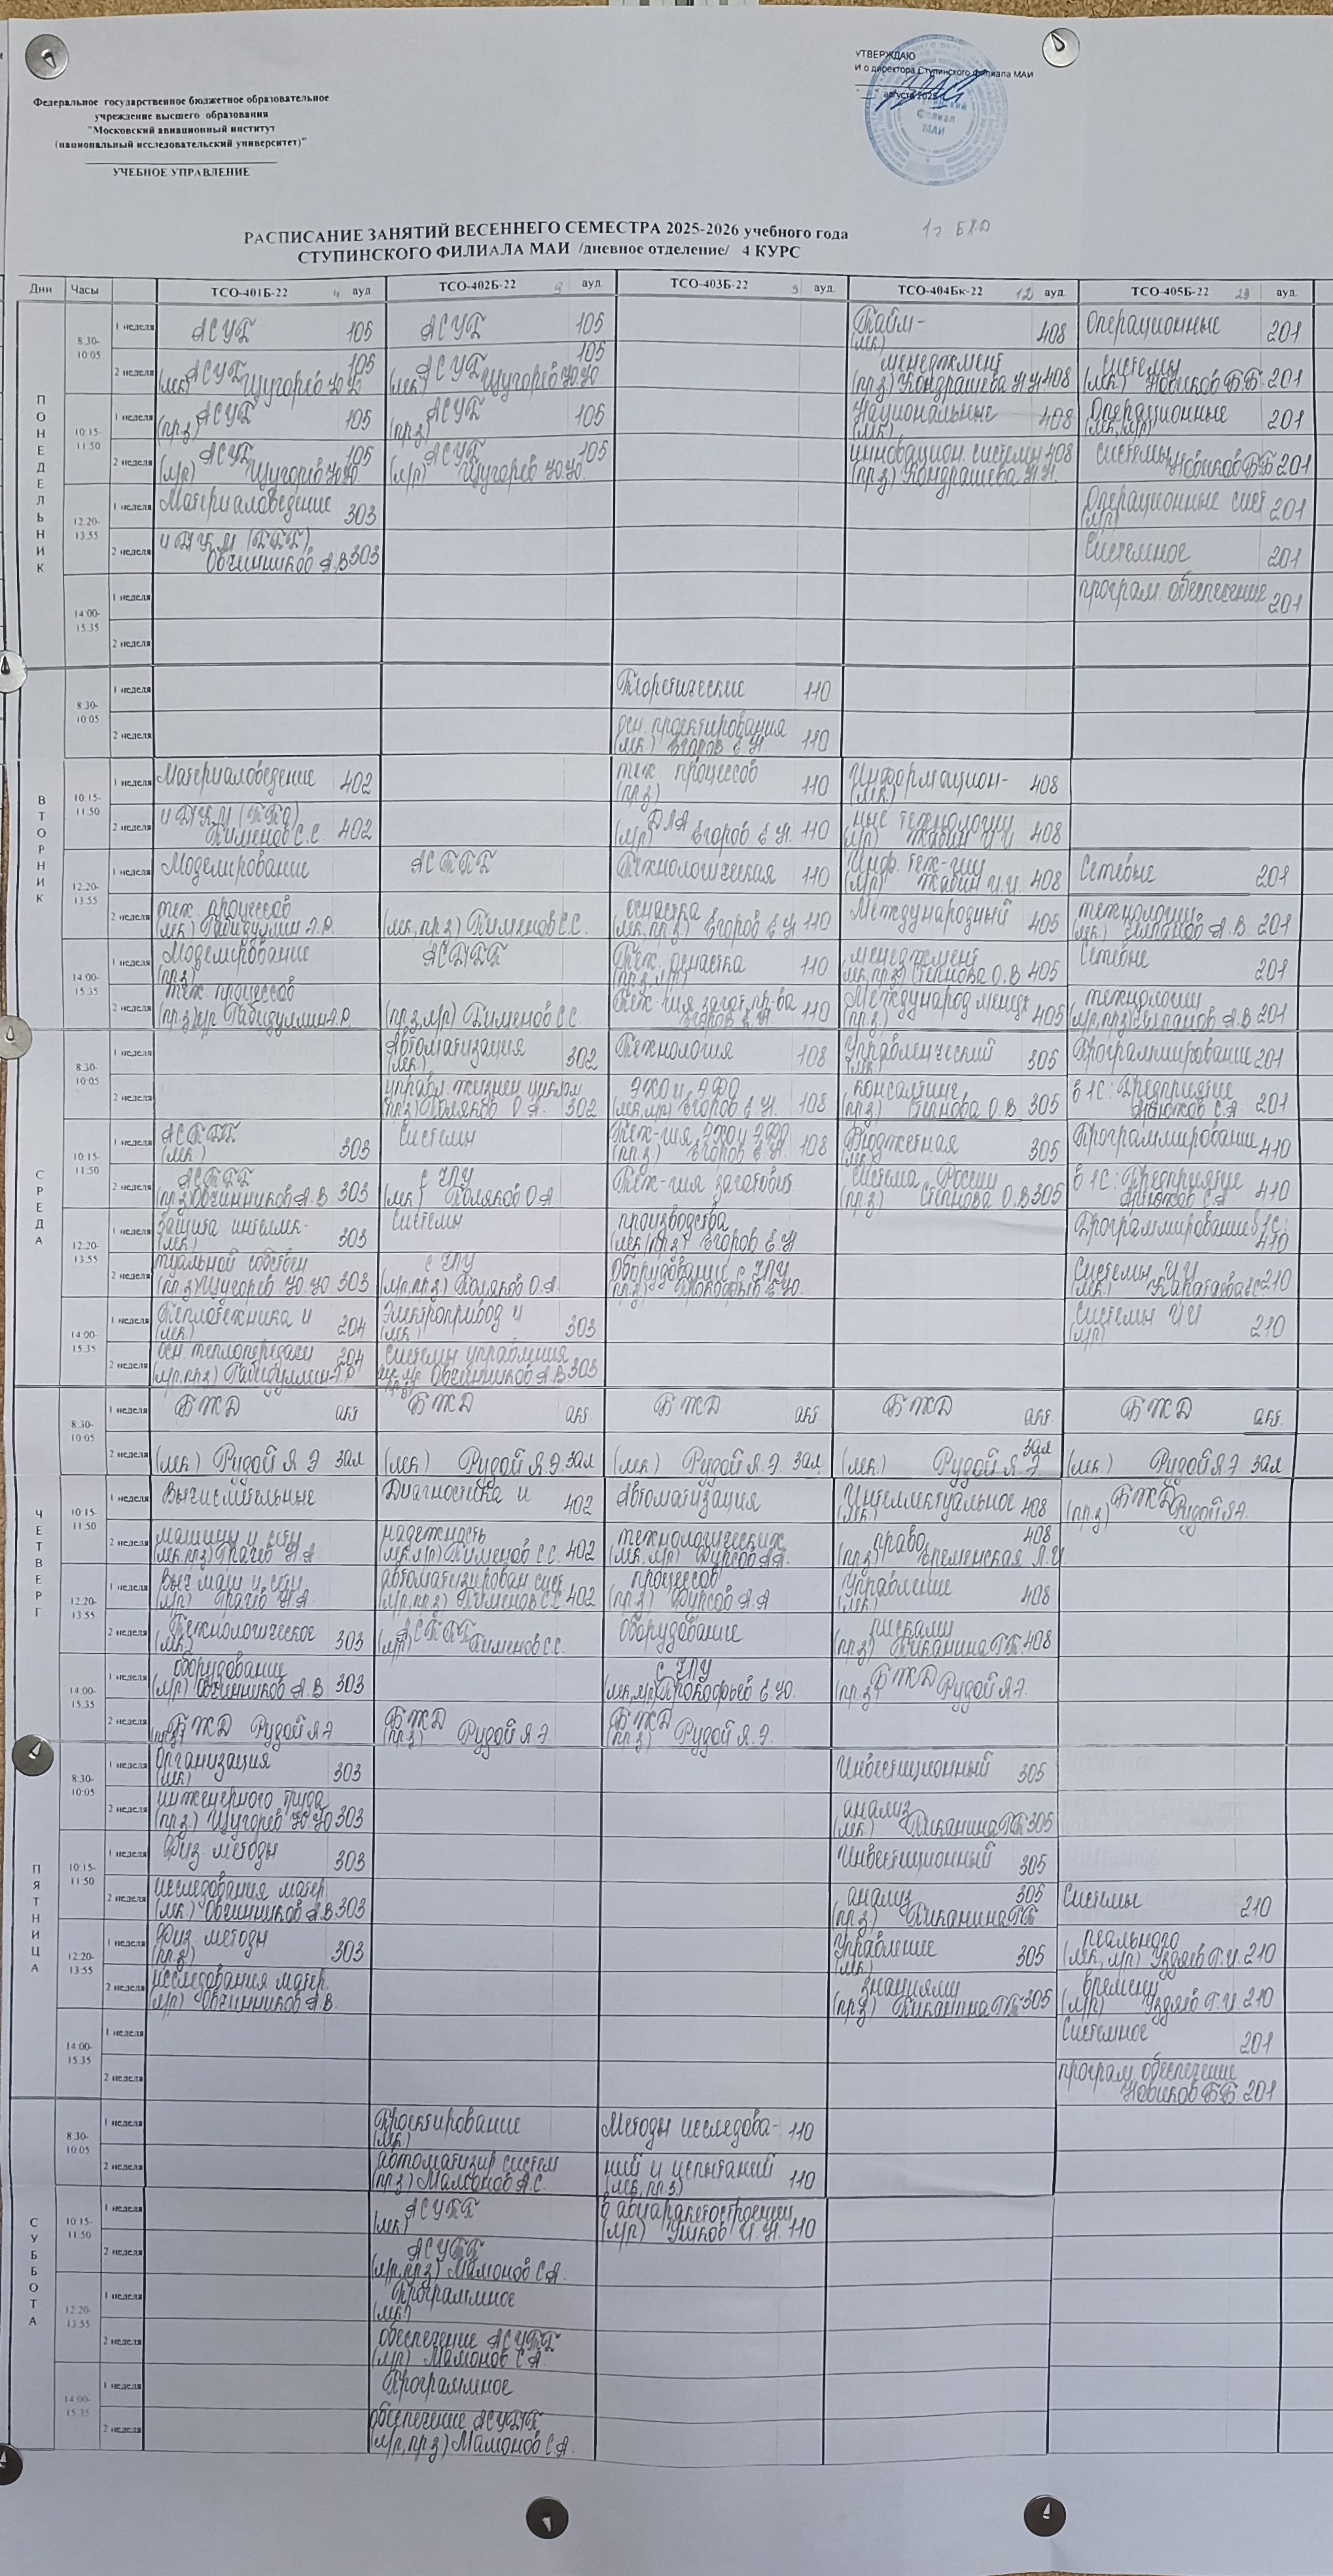 УТВЕРЖДАЮ
И о директора Ступинского филиала МАИ
августа 2025
филиал
МАИ
Федеральное государственное бюджетное образовательное
учреждение высшего образования
"Московский авиационный институт
(национальный исследовательский университет)"
УЧЕБНОЕ УПРАВЛЕНИЕ
РАСПИСАНИЕ ЗАНЯТИЙ ВЕСЕННЕГО СЕМЕСТРА 2025-2026 учебного года
СТУПИНСКОГО ФИЛИАЛА МАИ /дневное отделение/ 4 КУРС
Дни Часы ТСО-401Б-22 ауд. ТСО-402Б-22 ауд. ТСО-403Б-22 ауд. ТСО-404Бк-22 12 ауд. ТСО-405Б-22 29 ауд.
ПОНЕДЕЛЬНИК
8.30-10.05
1 неделя АСУП 105 АСУП 105 Тайм- (лк) 408 Операционные 201
2 неделя (лк) АСУП Щугорев Ю.Ю. 105 (лк) АСУП Щугорев Ю.Ю. 105 менеджмент (пр.з) Кондрашева Н.Н. 408 системы (лк) Новиков 201
10.15-11.50
1 неделя (пр.з) АСУП 105 (пр.з) АСУП 105 Национальные (лк) 408 Операционные (лк, л/р) 201
2 неделя (л/р) АСУП Щугорев Ю.Ю. 105 (л/р) АСУП Щугорев Ю.Ю. 105 инновацион. системы 408 (пр.з) Кондрашева Н.Н. системы Новиков 201
12.20-13.55
1 неделя Материаловедение 303 Операционные сист (л/р) 201
2 неделя Овчинников А.В 303 Системное 201
14.00-15.35
1 неделя програм. обеспечение 201
2 неделя
ВТОРНИК
8.30-10.05
1 неделя Теоретические 110
2 неделя осн. проектирования (лк) Егоров Е.Н 110
10.15-11.50
1 неделя Материаловедение 402 тех. процессов (пр.з) 110 Информацион- (лк) 408
2 неделя Пименов С.С. 402 (л/р) ДЛА Егоров Е.Н 110 ные технологии (л/р) 408
12.20-13.55
1 неделя Моделирование АСТПП Технологическая 110 Инф. тех-гии (л/р) 408 Сетевые 201
2 неделя тех. процессов (лк) Габидуллин Э.Р. (лк, пр.з) Пименов С.С. оснастка (лк.пр.з) Егоров Е.Н 110 Международный 405 технологии (лк) А.В. 201
14.00-15.35
1 неделя Моделирование (пр.з) АСТПП Тех. оснастка (пр.з, л/р) 110 менеджмент (лк,пр.з) Степнова О.В 405 Сетевые 201
2 неделя тех. процессов (пр.з) к/р Габидуллин Э.Р. (пр.з, л/р) Пименов С.С. Тех-гия загот. пр-ва Егоров Е.Н. 110 Международ. менедж (пр.з) 405 технологии (л/р, пр.з) А.В 201
СРЕДА
8.30-10.05
1 неделя Автоматизация (лк.) 302 Технология 108 Управленческий (лк) 305 Программирование 201
2 неделя управл. жизнен циклом (пр.з) Поляков О.А. 302 ЭХО и ЭФО (лк,л/р) Егоров Е.Н. 108 консалтинг (пр.з) Степнова О.В 305 в 1С: Предприятие С.А. 201
10.15-11.50
1 неделя АСТПП (лк) 303 Системы Тех-гия ЭХО и ЭФО (пр.з) Егоров Е.Н. 108 Бюджетная (лк) 305 Программировании 410
2 неделя АСТПП (пр.з) Овчинников А.В 303 с ЧПУ (лк) Поляков О.А Тех-гия заготовит. система России (пр.з) Степнова О.В 305 в 1С: Предприятие С.А. 410
12.20-13.55
1 неделя Защита интеллек- (лк) 303 Системы производства (лк,пр.з) Егоров Е.Н. Программирование в 1С: 410
2 неделя туальной собствен (пр.з) Щугорев Ю.Ю. 303 с ЧПУ (л/р.пр.з) Поляков О.А. Оборудование с ЧПУ (пр.з) Прокофьев Е.Ю. Системы ИИ (лк) 210
14.00-15.35
1 неделя Теплотехника и (лк) 204 Электропривод и (лк) 303 Системы ИИ (л/р) 210
2 неделя осн. теплопередачи 204 (л/р.пр.з) Габидуллин Э.Р системы управления Овчинников А.В 303
ЧЕТВЕРГ
8.30-10.05
1 неделя БЖД акт. БЖД акт. БЖД акт. БЖД акт. БЖД акт.
2 неделя (лк) Рудой Я.Э зал (лк) Рудой Я.Э. зал (лк) Рудой Я.Э. зал (лк) Рудой Я.Э. зал (лк) Рудой Я.Э зал
10.15-11.50
1 неделя Вычислительные Диагностика и 402 Автоматизация Интеллектуальное (лк) 408 (пр.з) БЖД Рудой Я.Э.
2 неделя машины и сети (лк.пр.з) надежность (лк.л/р) Пименов С.С. 402 технологических (лк.л/р) Фурсов А.А. право 408 (пр.з) Временская Л.И.
12.20-13.55
1 неделя Выч маш и сети (л/р) автоматизирован. сист (л/р,пр.з) Пименов С.С 402 процессов (пр.з) Фурсов А.А Управление (лк) 408
2 неделя Технологическое (лк) 303 (л/р) АСТПП Пименов С.С. Оборудование рисками (пр.з) Пиканина 408
14.00-15.35
1 неделя оборудование (л/р) Овчинников А.В 303 с ЧПУ (лк,л/р) Прокофьев Е.Ю. (пр.з) БЖД Рудой Я.Э.
2 неделя (пр.з) БЖД Рудой Я.Э БЖД (пр.з) Рудой Я.Э БЖД (пр.з) Рудой Я.Э.
ПЯТНИЦА
8.30-10.05
1 неделя Организация (лк) 303 Инвестиционный 305
2 неделя инженерного труда (пр.з) Щугорев Ю.Ю 303 анализ (лк.) Пиканина 305
10.15-11.50
1 неделя Физ. методы 303 Инвестиционный 305
2 неделя исследования матер. (лк) Овчинников А.В 303 анализ 305 (пр.з) Пиканина Системы 210
12.20-13.55
1 неделя Физ. методы (пр.з) 303 Управление (лк) 305 реального (лк, л/р) Уздяев Г.И. 210
2 неделя исследования матер. (л/р) Овчинников А.В. знаниями (пр.з) Пиканина 305 времени (л/р) Уздяев Г.И. 210
14.00-15.35
1 неделя Системное 201
2 неделя програм. обеспечение Новиков 201
СУББОТА
8.30-10.05
1 неделя Проектирование (лк) Методы исследова- 110
2 неделя автоматизир систем (пр.з) Мамонов А.С. ний и испытаний (лк, пр.з) 110
10.15-11.50
1 неделя АСУТП (лк) в авиаракетостроении (л/р) Ушков И.Н. 110
2 неделя АСУТП (л/р,пр.з) Мамонов С.А.
12.20-13.55
1 неделя Программное (лк)
2 неделя обеспечение АСУТП (л/р) Мамонов С.А
14.00-15.35
1 неделя Программное
2 неделя обеспечение АСУТП (л/р, пр.з) Мамонов С.А.